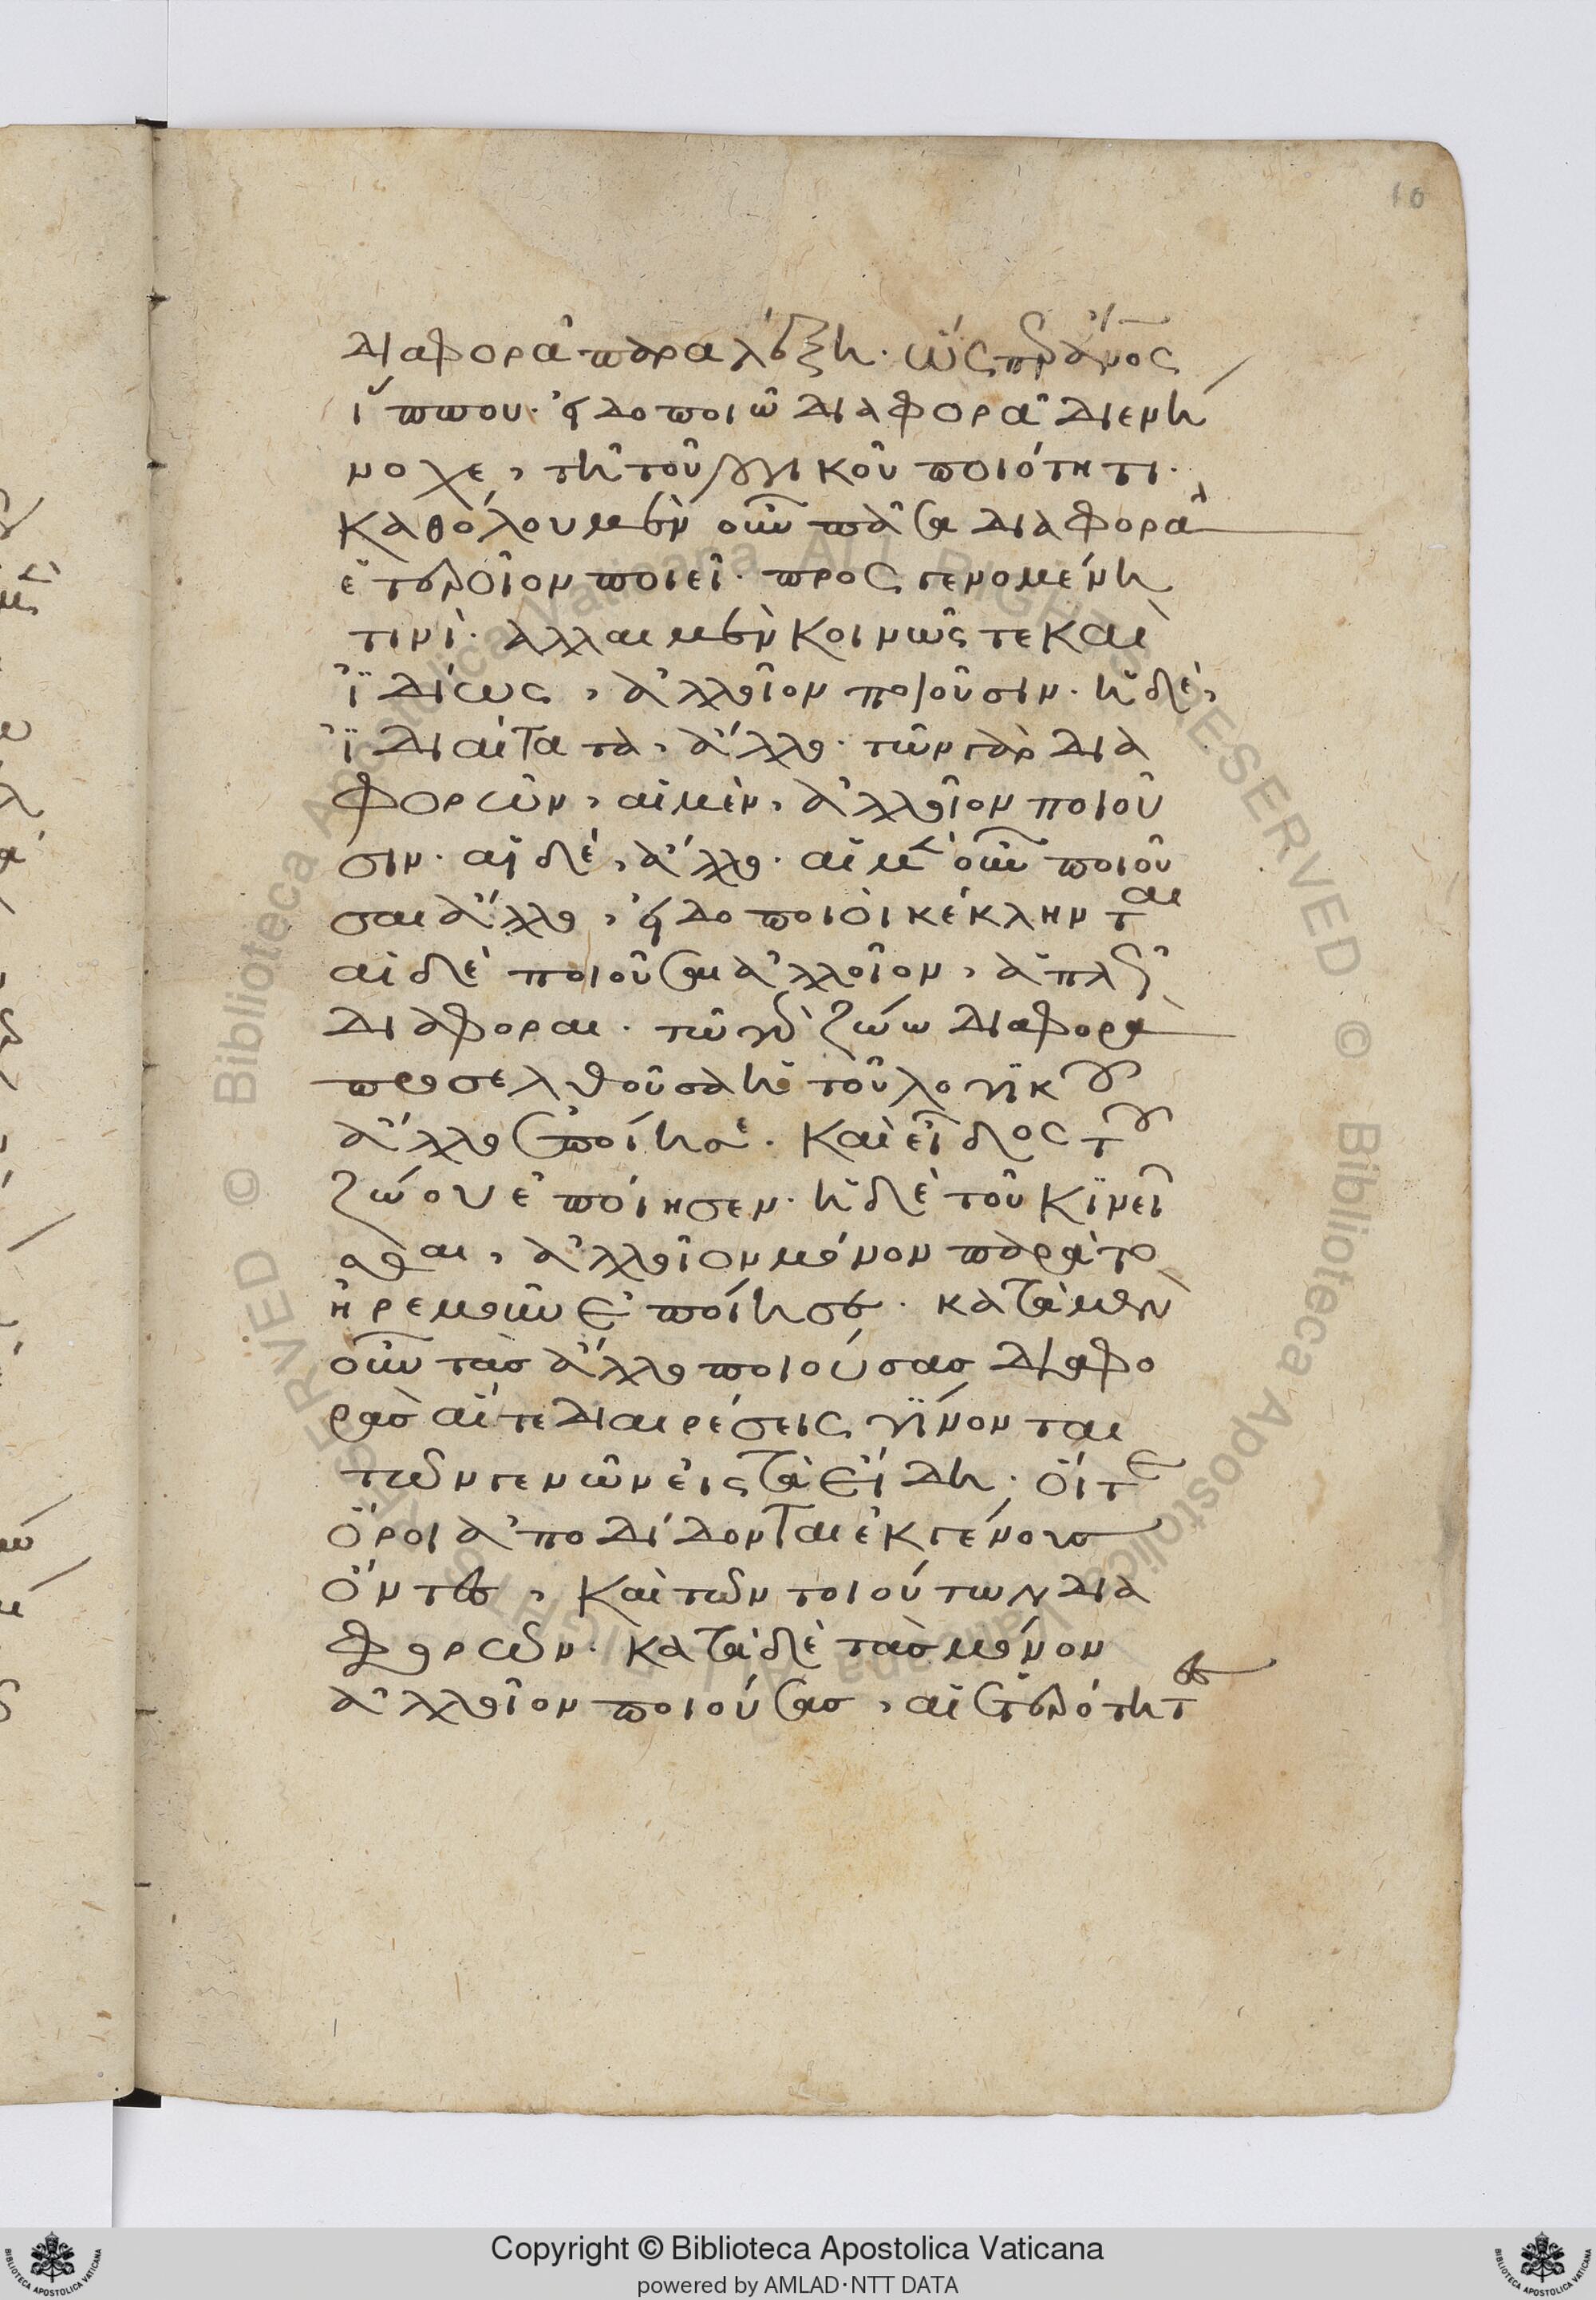 10
διαφορᾶ παραλάξη· ὡς περ ἄνος
ἵππου· εἰδοποιῶ διαφορᾶ διενή
νοχε, τῆ τοῦ λογικοῦ ποιότητι·
καθόλου μὲν οὖν πᾶσα διαφορὰ
ἑτεροῖον ποιεῖ· προσγενομένη
τινί· ἀλλαι μὲν κοινῶς τε καὶ
ἰδίως, ἀλλοῖον ποιοῦσιν· ἡ δὲ,
ἰδιαίτατα, ἄλλο· τῶν γὰρ δια
φορῶν, αἱ μὲν, ἀλλοῖον ποιοῦ
σιν· αἱ δὲ, ἄλλο· αἱ μὲν οὖν ποιοῦ
σαι ἄλλο, εἰδοποιοὶ κέκληνται
αἱ δὲ ποιοῦσαι ἀλλοῖον, ἁπλῶς
διαφοραι· τῶ γὰρ ζώω διαφορὰ
προσελθοῦσα ἡ τοῦ λογικοῦ
ἄλλο ἐποίησε· καὶ εἶδος τοῦ
ζώου ἐποίησεν· ἡ δὲ τοῦ κινεῖ
σθαι, ἀλλοῖον μόνον παρὰ το
ἠρεμοῦν ἐποίησεν· κατὰ μὲν
οὖν τὰσ ἄλλο ποιούσασ διαφο
ρὰσ αἵ τε διαιρέσεις γίνονται
τῶν γενῶν εἰς τὰ εἴδη· οἵ τε
ὅροι ἀποδίδονται ἐκ γένουσ
ὄντεσ, καὶ τῶν τοιούτων δια
φορῶν· κατὰ δὲ τὰσ μόνον
ἀλλοῖον ποιούσασ, αἱ ἑτερότητεσ
Copyright © Biblioteca Apostolica Vaticana
powered by AMLAD·NTT DATA